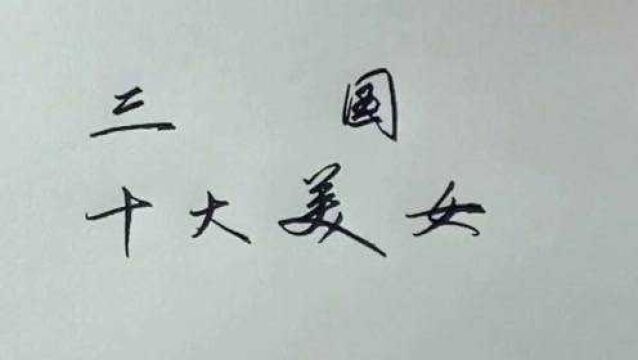 三国
十大美女